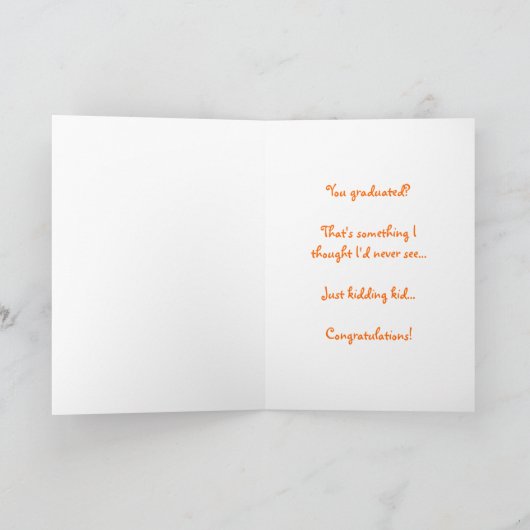 You graduated?
That's something I
thought I'd never see...
Just kidding kid...
Congratulations!